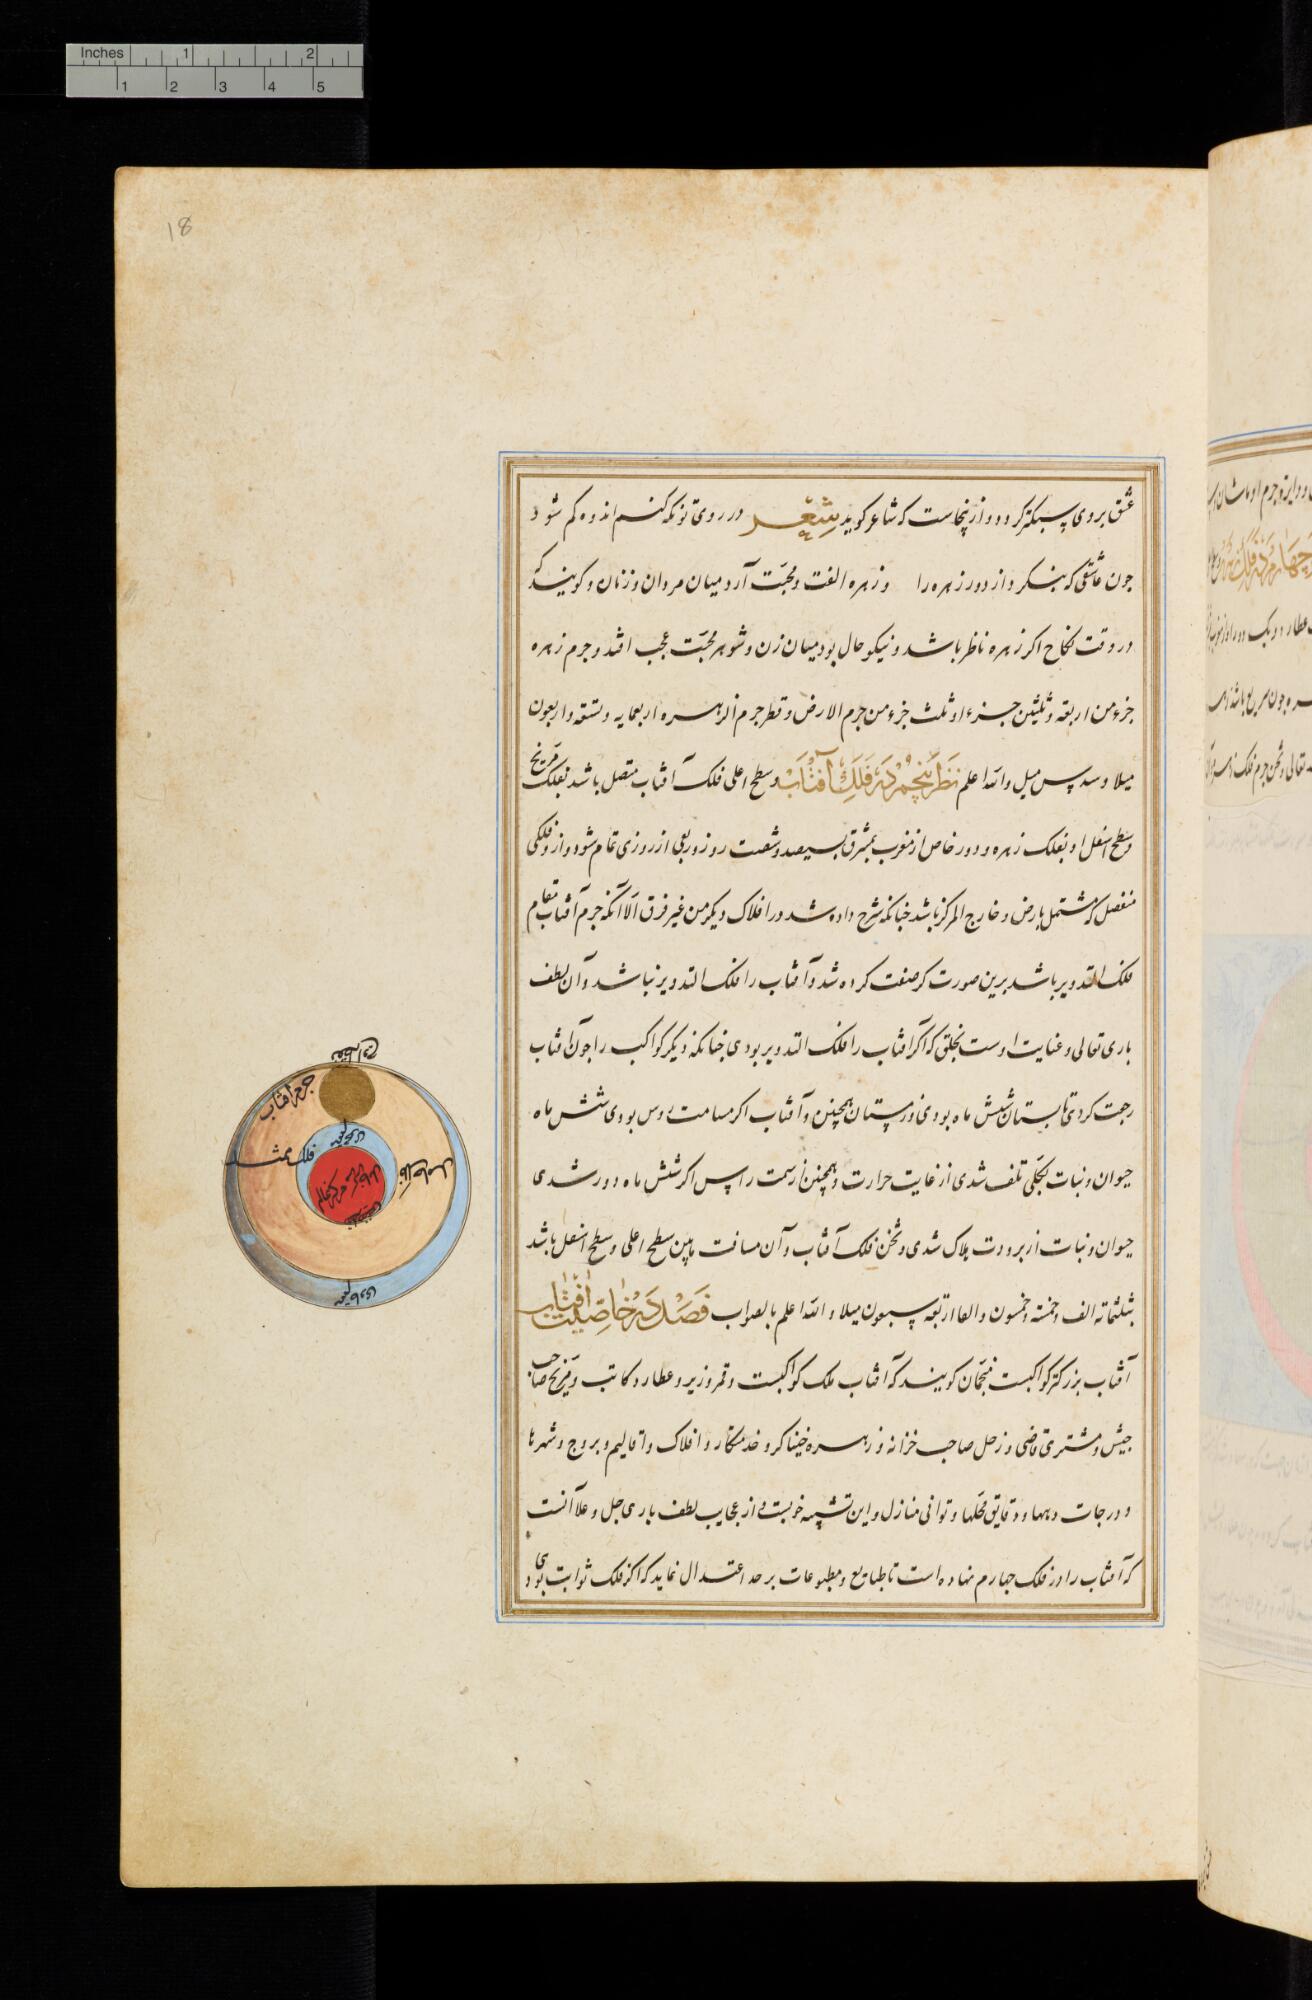 عشق بروی سبکتر کردد و از ینجاست که شاعر کوید شِعر در روی تو نکه کنم اندوه کم شود
جون عاشقی که بنکرد از دور زهره را و زهره الفت و محبّت آرد میان مردان و زنان و کویند که
در وقت نکاح اکر زهره ناظر باشد و نیکو حال بود میان زن و شوهر محبّت عجب افتد و جرم زهره
جزء من اربعة و ثلثین جزء او ثلث جزء من جرم الارض و قطر جرم الزهره اربعمایه و تسعة و اربعون
میلا و سدس میل و الله اعلم نَظَر پَنجُم دَر فَلَکِ آفتاب و سطح اعلی فلک آفتاب متصل باشد بفلک مریخ
و سطح اسفل او بفلک زهره و دور خاص از مغرب بمشرق بسیصد و شصت روز و ربعی از روزی تمام شود و از و فلکی
منفصل که مشتمل بارض و خارج المرکز باشد خبانکه شرح داده شد در افلاک دیکر من غیر فرق الّا آنکه جرم آفتاب مقام
فلک التدویر باشد برین صورت که صفت کرده شد و آفتاب را فلک التدویر نباشد و آن لطف
باری تعالی و عنایت اوست بخلق که اکر افتاب را فلک التدویر بودی خبانکه دیکر کواکب را جون افتاب
رجعت کردی تابستان شش ماه بودی و زمستان همچنین و آفتاب اکر مسامت روس بودی شش ماه
حیوان و نبات بکلّی تلف شدی از غایت حرارت و همچنین از سمت راس اکر شش ماه دور شدی
حیوان و نبات از برودت هلاک شدی و ثخن فلک آفتاب و آن مسافت مابین سطح اعلی و سطح اسفل باشد
بثلثمائه الف و خمسة و خمسون و الفا اربعه سبعون میلا و الله اعلم بالصواب فَصل دَر خاصیت آفتاب
آفتاب بزرکتر کواکبست منجمان کویند که آفتاب ملک کواکبست و قمر وزیر و عطارد کاتب و مریخ صاحب
جیش و مشتری قاضی و زحل صاحب خزانه و زهره خنیاکر و خدمتکار و افلاک و اقالیم و بروج و شهرها
و درجات دیهها و دقایق محلها و ثوانی منازل و این تشبیه خوبست و از عجایب لطف باری جل و علا آنست
که آفتاب را در فلک جهارم نهاده است تا طبایع و مطبوعات بر حد اعتدال نماید که اکر فلک ثوابت بودی
نقطه اوج
جرم افتاب
فلک ممثل
مرکز عالم
18
Inches 1 2
1 2 3 4 5